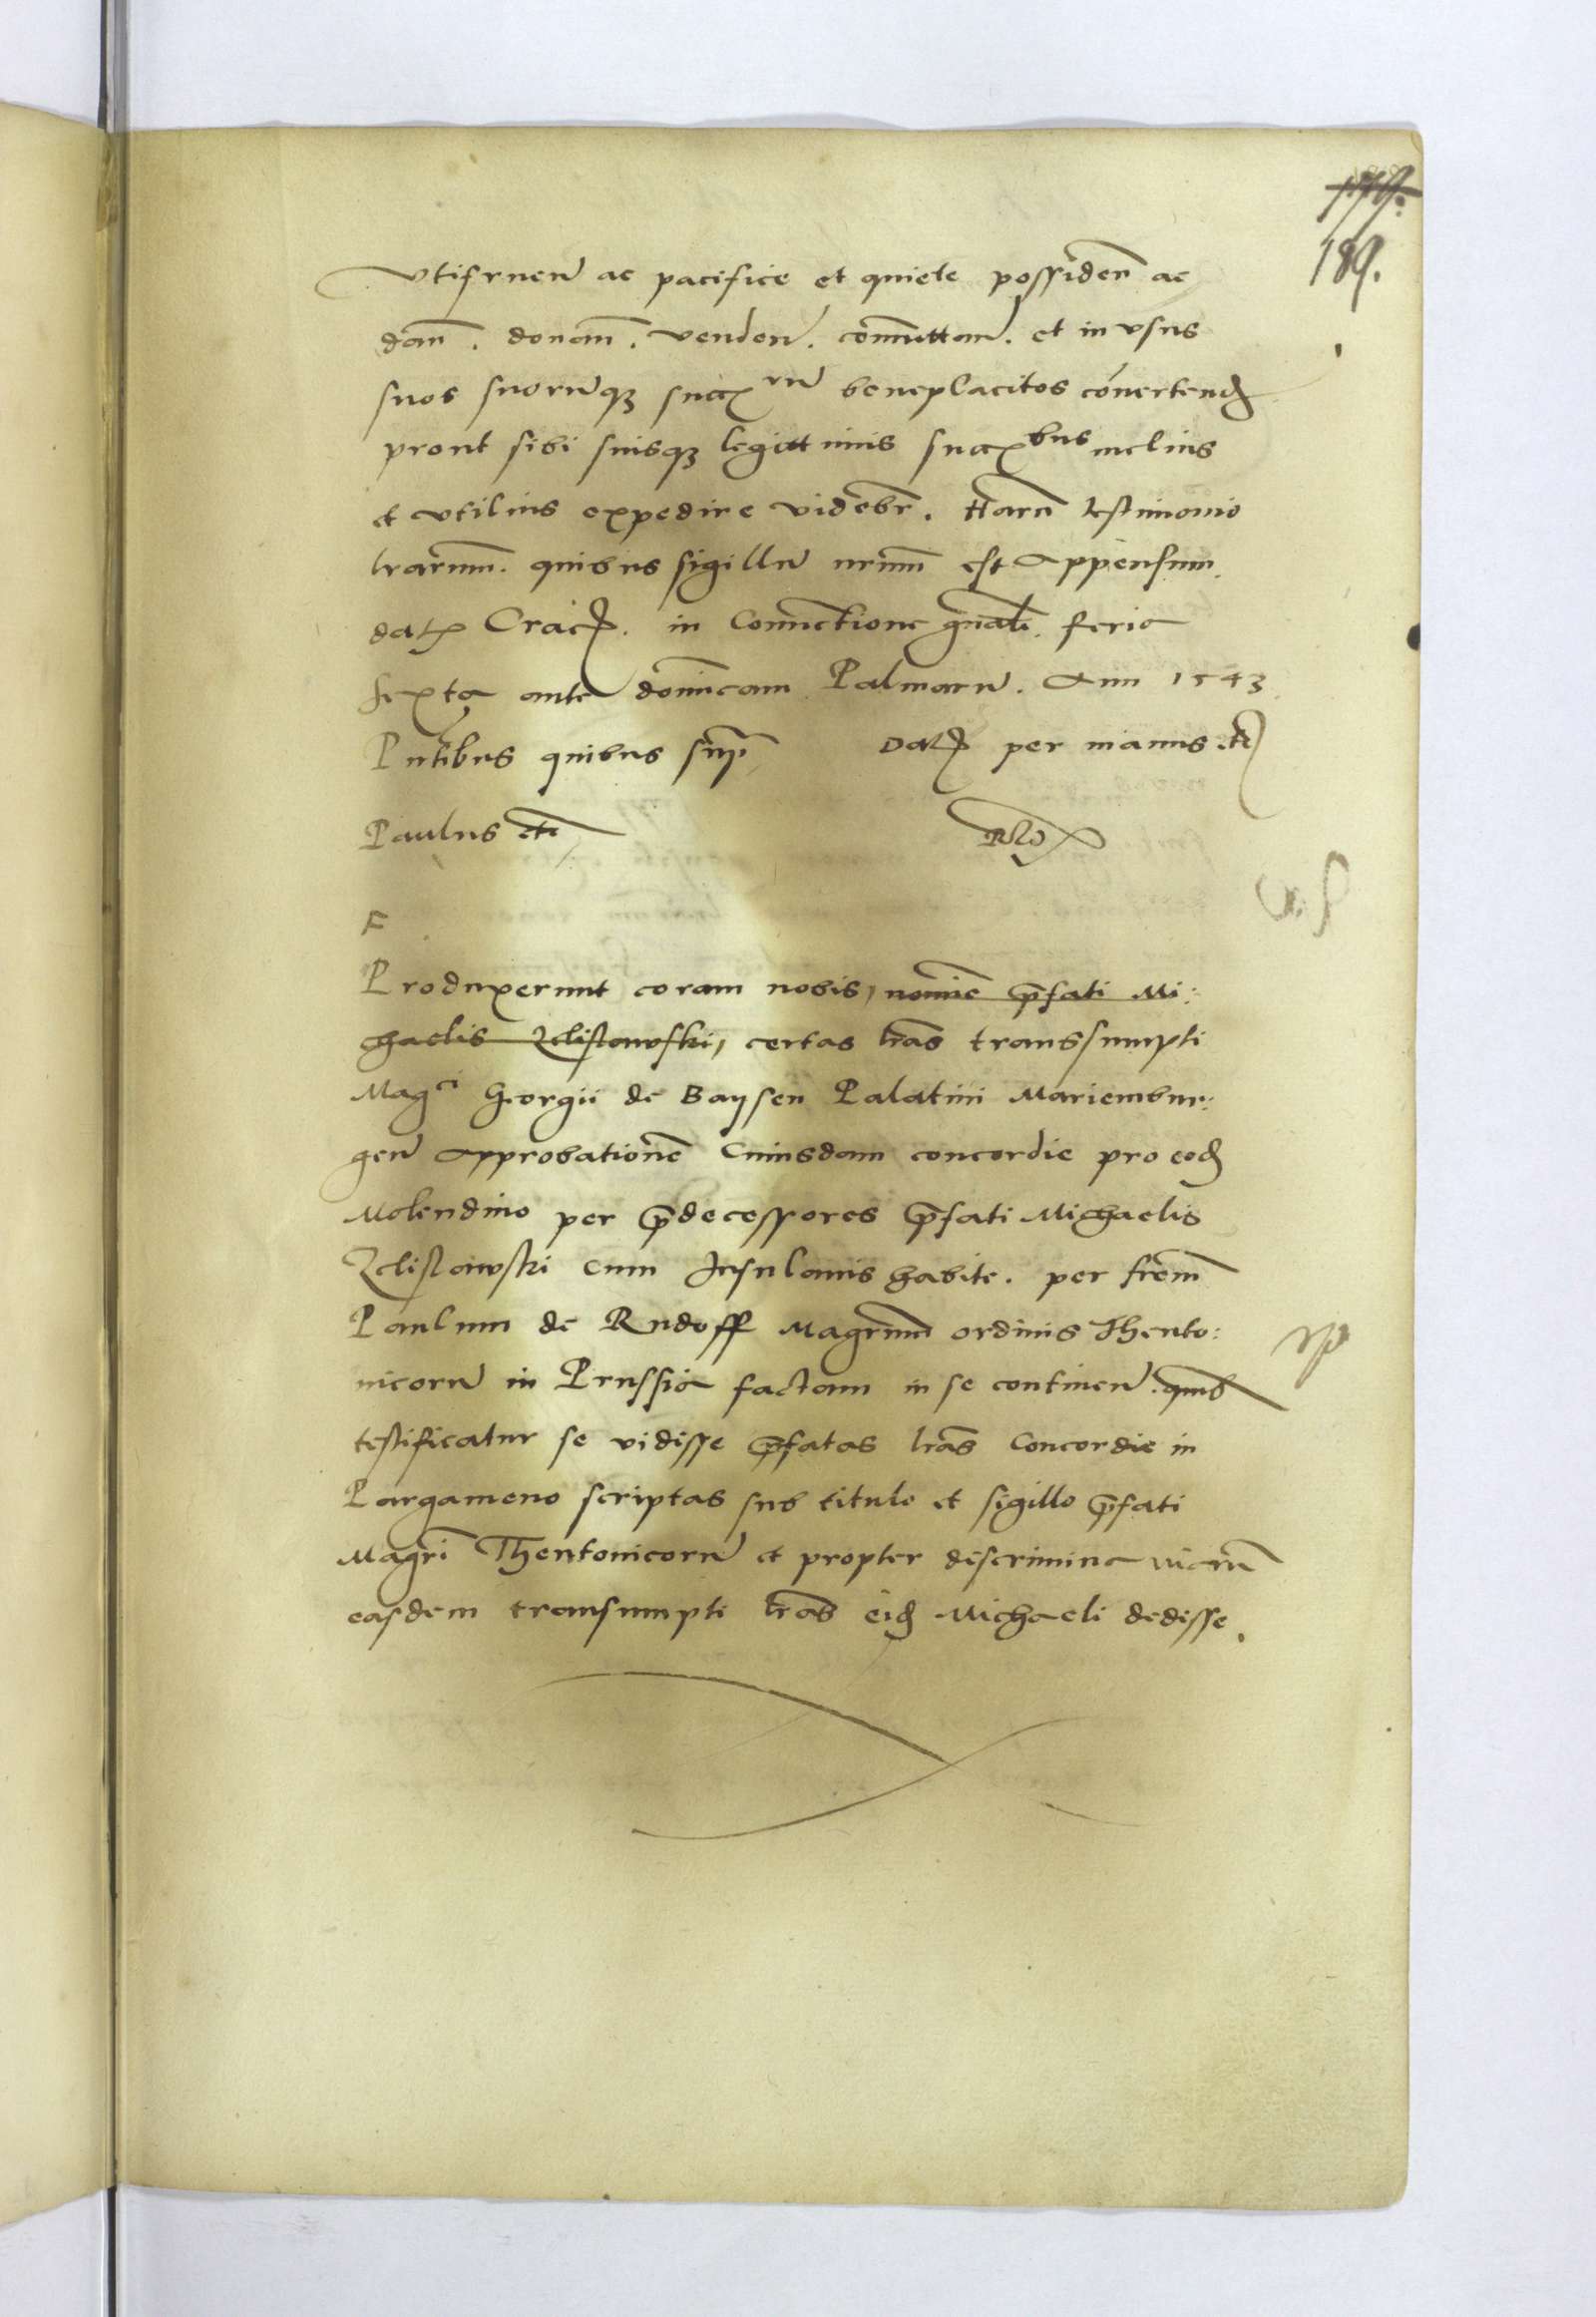 189.
vtifruen ac pacifice et quiete possiden ac
dan. donan. venden. comuttan. et in vsus
suos suorumqz succ rum beneplacitos conuertend
prout sibi suisqz legittimis succ bus melius
et vtilius expedire videbr. Harum testimonio
lrarum. quibus sigillum nrum est appensum.
dat Crac. in Conuectione gnali. feria
sexta ante dominicam Palmarum. Ann 1543
Pntibus quibus sup Dat per manus etc
Paulus etc
F
Produxerunt coram nobis, nomine prefati Mi:
chaelis Zelislawski, certas lras transsumpti
Magci Georgii de Baysen Palatini Mariembur:
gen approbatione Cuiusdam concordie pro eod
Molendino per predecessores prefati Michaelis
Zelislawski cum Insulanis habite. per frem
Paulum de Rudoff Magrum ordinis Theuto:
nicorum in Prussia factam in se continen. quib
testificatur se vidisse prefatas lras Concordie in
Pargameno scriptas sub titulo et sigillo prefati
Magri Theutonicorum et propter discrimina viarum
easdem transumpti lras eid Michaeli dedisse.